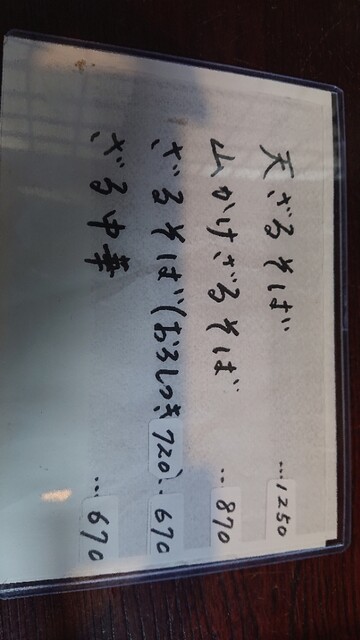 天ざるそば …1250
山かけざるそば …870
ざるそば(おろしつき720)…670
ざる中華 …670